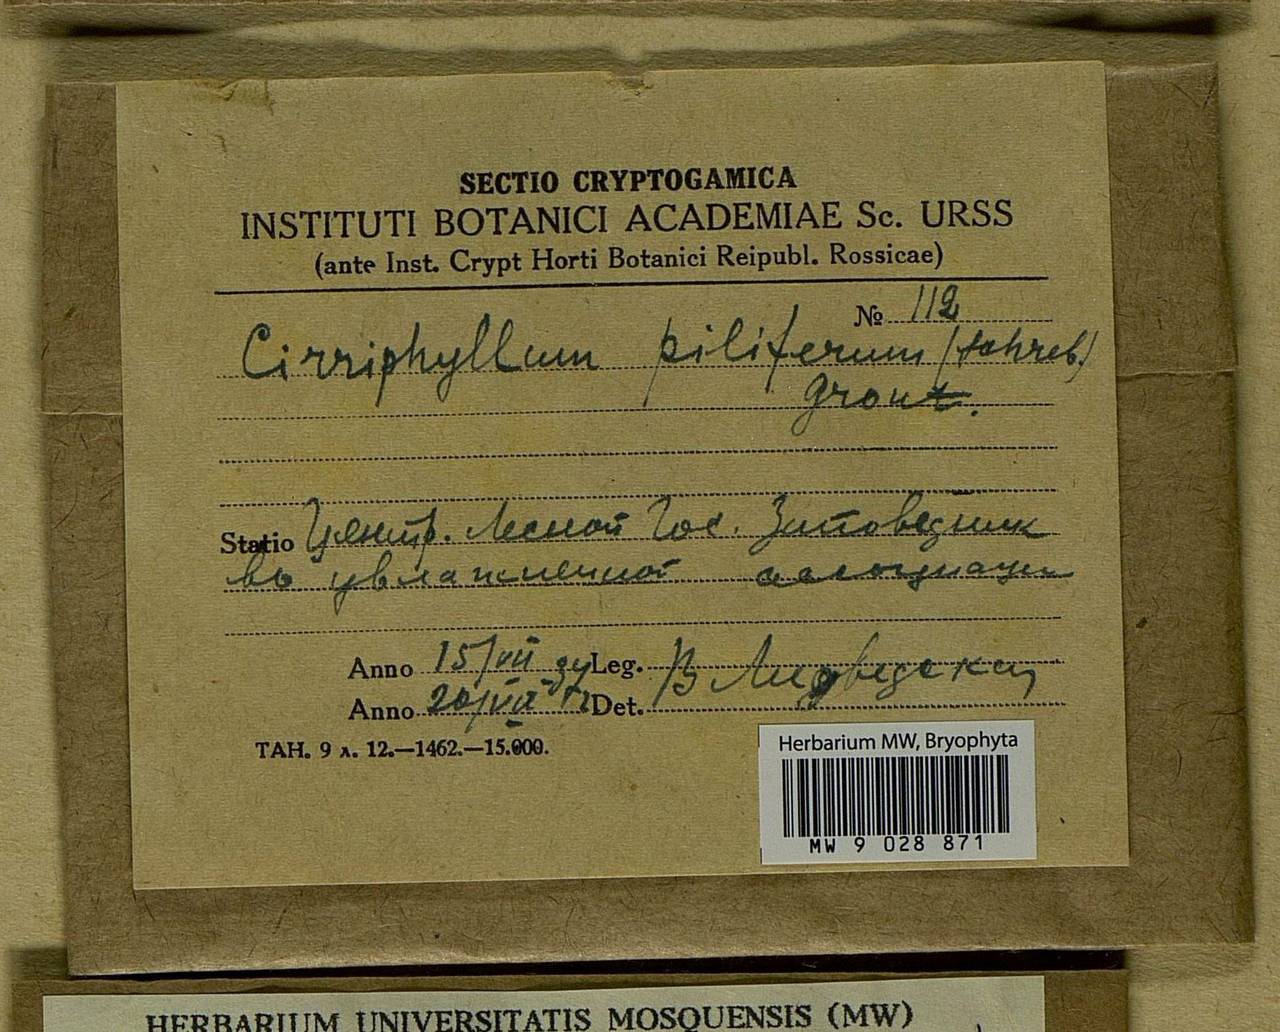 SECTIO CRYPTOGAMICA
INSTITUTI BOTANICI ACADEMIAE Sc. URSS
(ante Inst. Crypt Horti Botanici Reipubl. Rossicae)
№ 112
Cirriphyllum piliferum (Schreb.)
Grout.
Statio Центр. Лесной Гос. Заповедник
въ увлажненной ассоциации
Anno 15/VII Leg. В
Anno 20/VII Det.
ТАН. 9 л. 12.—1462.—15.000.
Herbarium MW, Bryophyta
MW 9 028 871
HERBARIUM UNIVERSITATIS MOSQUENSIS (MW)